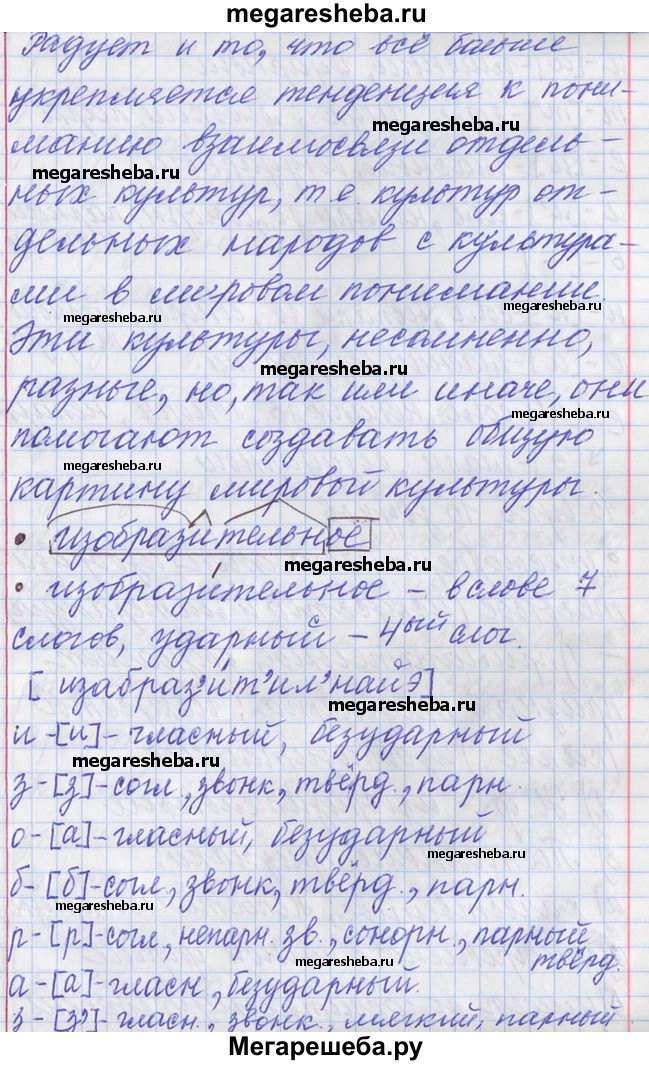 megaresheba.ru
Радует и то, что всё больше
укрепляется тенденция к пони-
megaresheba.ru
манию взаимосвязи отдель-
megaresheba.ru
ных культур, т.е. культур от-
дельных народов с культура-
ми в мировом понимании.
megaresheba.ru
megaresheba.ru
Эти культуры, несомненно,
megaresheba.ru
разные, но, так или иначе, они
megaresheba.ru
помогают создавать общую
megaresheba.ru
картину мировой культуры.
• изобразительное
megaresheba.ru
• изобразительное – в слове 7
слогов, ударный – 4ый слог.
[изабраз'ит'ил'найэ]
megaresheba.ru
и - [и] - гласный, безударный
megaresheba.ru
з - [з] - согл., звонк., твёрд., парн.
о - [а] - гласный, безударный
megaresheba.ru
б - [б] - согл., звонк., твёрд., парн.
megaresheba.ru
р - [р] - согл., непарн. зв., сонорн., парный
твёрд.
megaresheba.ru
а - [а] - гласн., безударный.
з - [з'] - гласн., звонк., мягкий, парный
Мегарешеба.ру